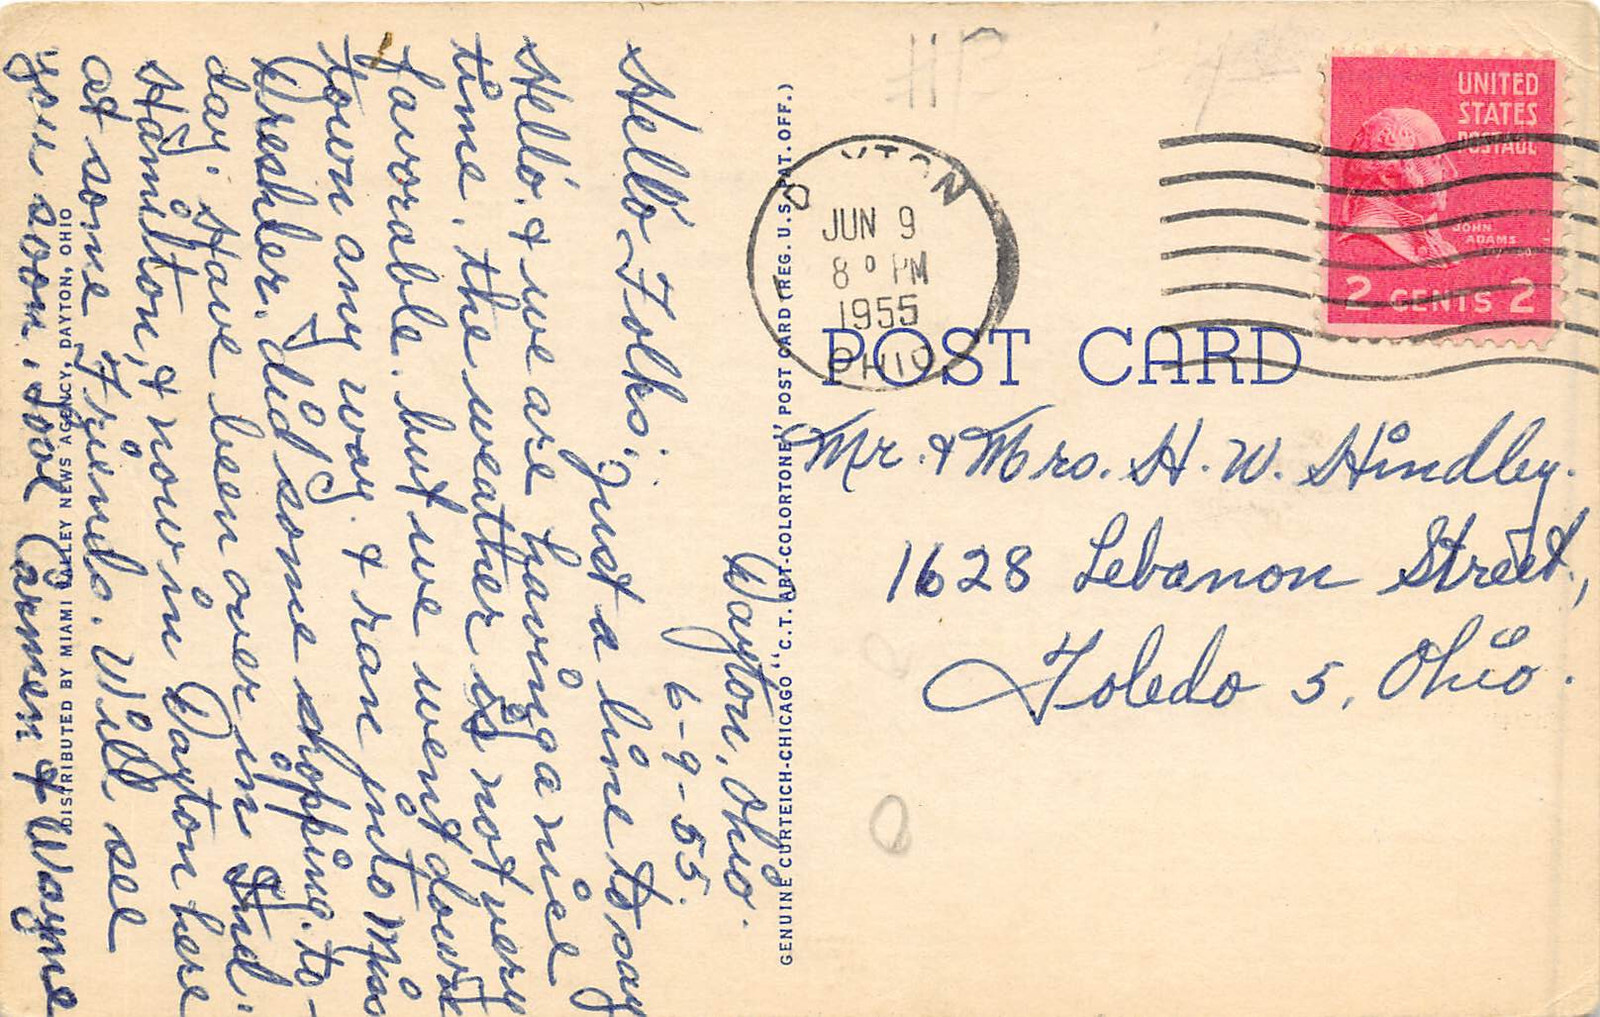 Dayton, Ohio.
6-9-55.
Hello Folks;
Just a line to say
Hello. & we are having a nice
time. the weather is not very
favorable. but we went down
town any way. & ran into Miss
Dreshler. did some shopping. to-
day. Have been over in Ind.
Hamilton, & now in Dayton here
at some Friends. Will see
you soon. Love Carmen & Wayne
DISTRIBUTED BY MIAMI VALLEY NEWS AGENCY, DAYTON, OHIO
GENUINE CURTEICH-CHICAGO "C.T. ART-COLORTONE" POST CARD (REG. U.S. PAT. OFF.)
DAYTON
JUN 9
8 PM
1955
OHIO
UNITED
STATES
POSTAGE
JOHN
ADAMS
2 CENTS 2
POST CARD
Mr. & Mrs. H. W. Hindley.
1628 Lebanon Street,
Toledo 5, Ohio.